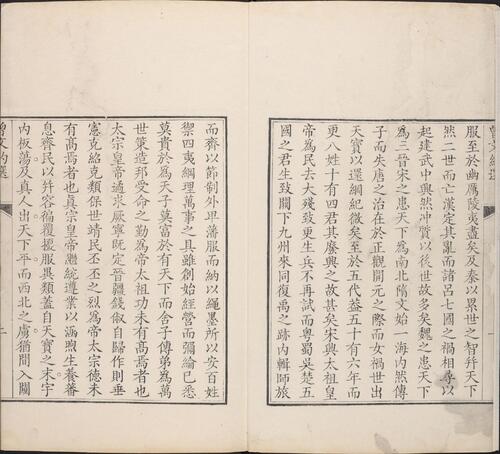 曾文約選
一
服至於幽厲陵夷盡矣及秦以累世之智并天下
然二世而亡漢定其亂而諸呂七國之禍相尋以
起建武中興然冲質以後世故多矣魏之患天下
為三晉宋之患天下為南北隋文始一海內然傳
子而失唐之治在於正觀開元之際而女禍世出
天寶以還綱紀微矣至於五代葢五十有六年而
更八姓十有四君其廢興之故甚矣宋興太祖皇
帝為民去大殘致更生兵不再試而粵蜀吳楚五
國之君生致闕下九州來同復禹之跡內輯師旅
而齊以節制外卑藩服而納以繩墨所以安百姓
禦四夷綱理萬事之具雖創始經營而彌綸已悉
莫貴於為天子莫富於有天下而舍子傳弟為萬
世策造邦受命之勤為帝太祖功未有高焉者也
太宗皇帝遹求厥寧既定晉疆錢俶自歸作則垂
憲克紹克類保世靖民丕丕之烈為帝太宗德未
有高焉者也真宗皇帝繼統遵業以涵煦生養蕃
息齊民以并容徧覆擾服異類葢自天寶之末宇
內板蕩及真人出天下平而西北之虜猶間入闚
曾文約選
二